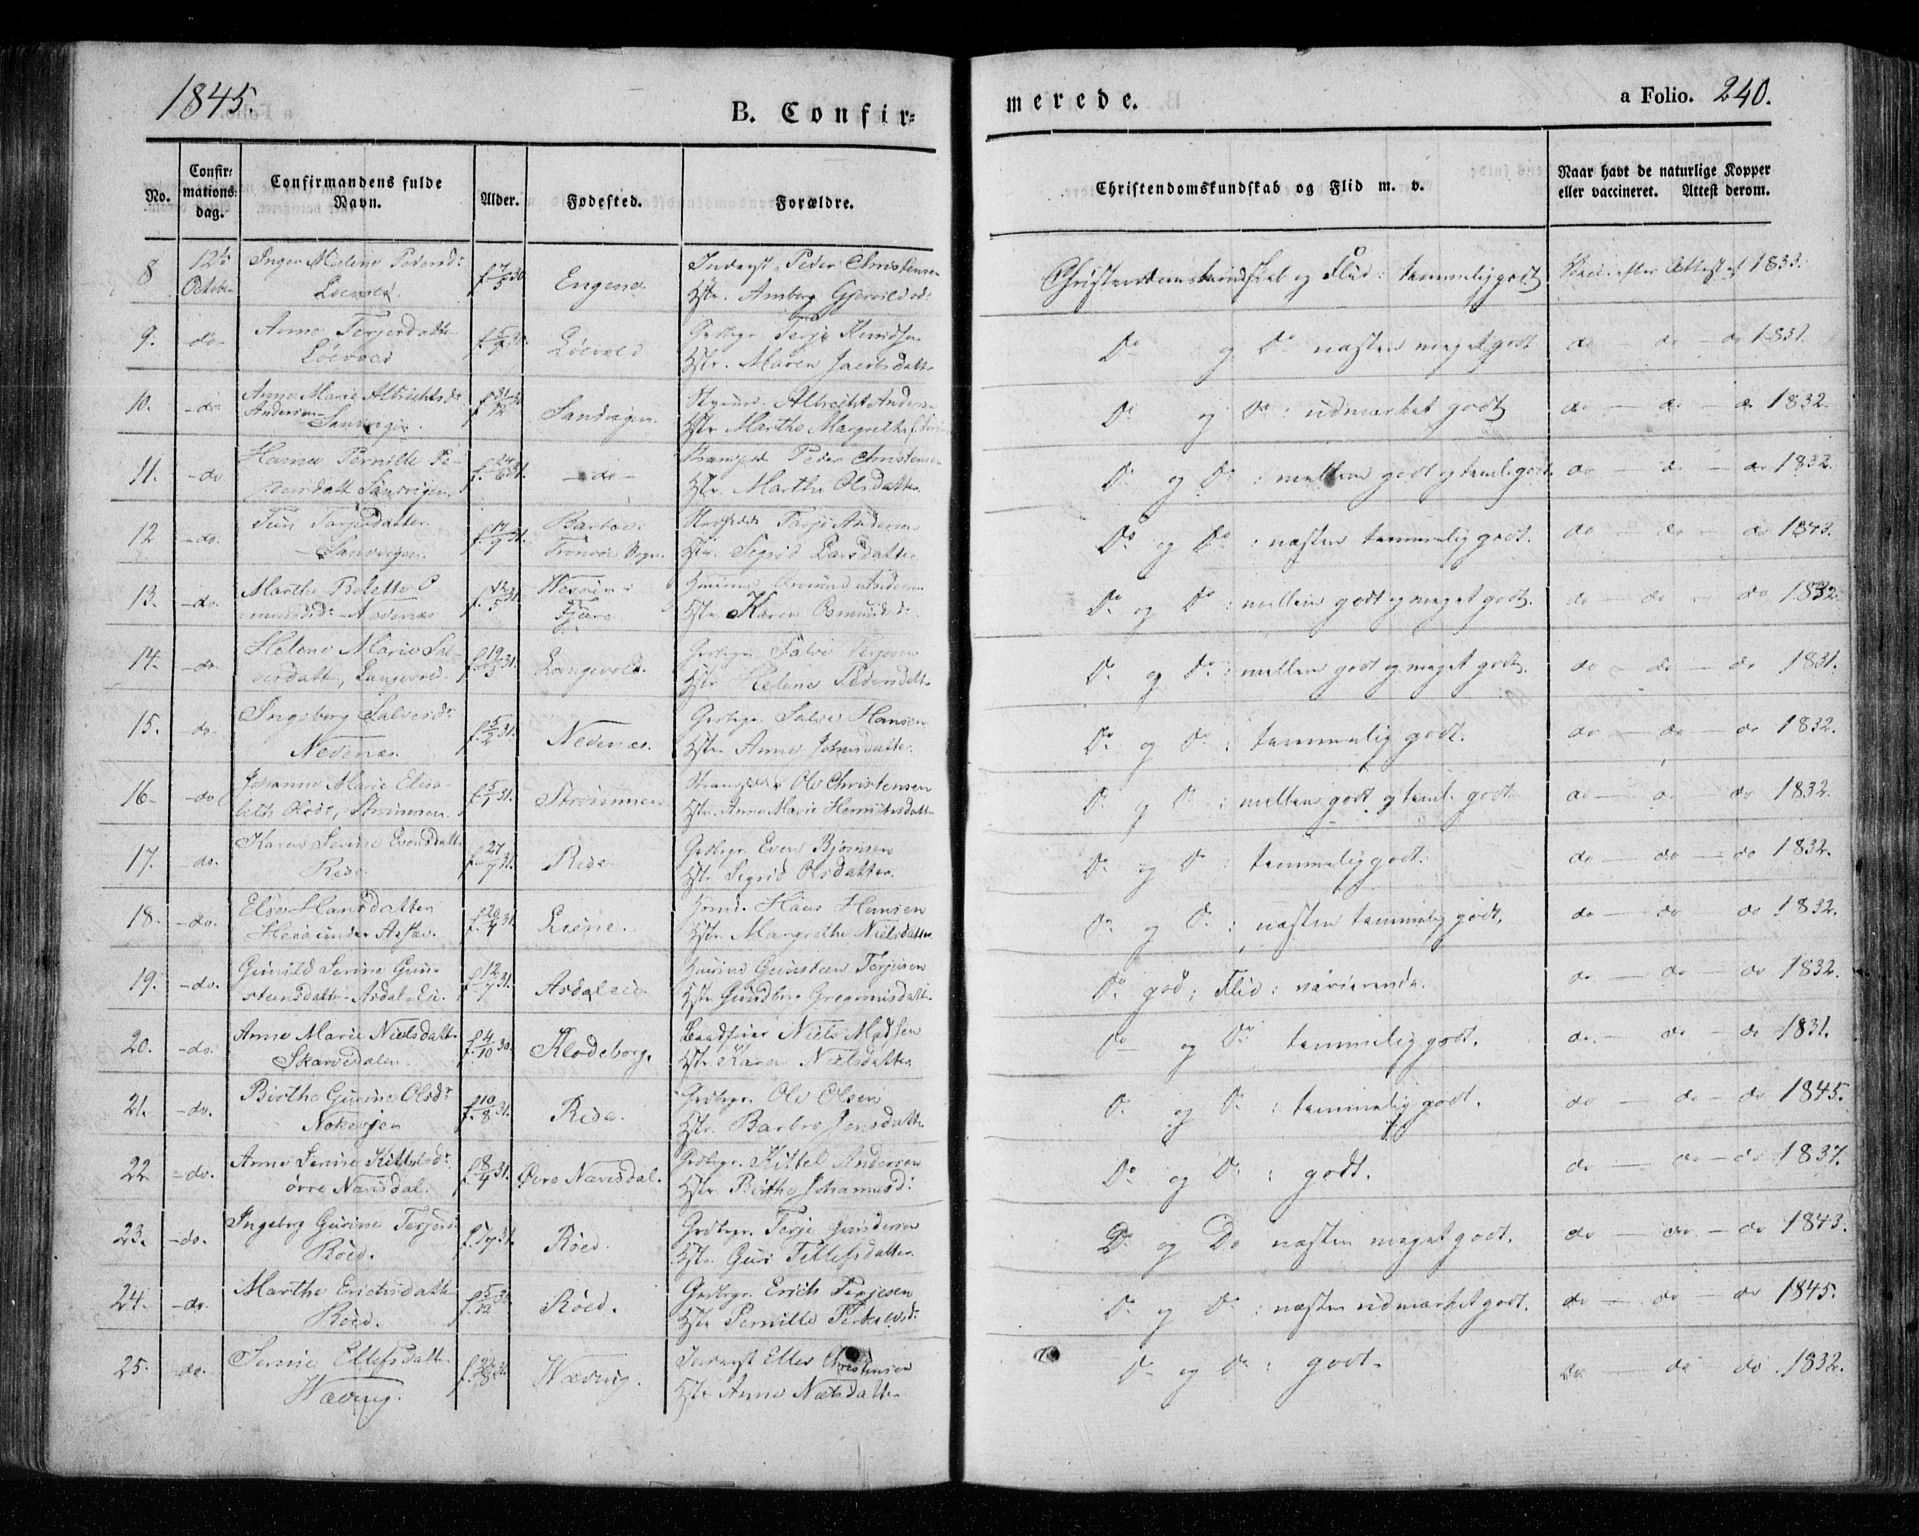 1845.
B. Confir-
merede.
a Folio. 240.
No.
Confir-
mations-
dag.
Confirmandens fulde
Navn.
Alder.
Fødested.
Forældre.
Christendomskundskab og Flid m. v.
Naar havt de naturlige Kopper
eller vaccineret. Attest derom.
8 12te October Inger Malene Pedersdr
Løevold. f. 7/5 30 Engene Inderst Peder Christensen
Hstr. Amborg
Christendomskundskab og Flid: temmelig godt Vacc. efter Attest af 1833.
9. do Anne Terjersdatter
Løevold Løevold Grdbgr. Terje Knudsen
Hstr. Maren Jacobsdatter
Do og Do næsten meget godt do - do - do 1831.
10. -do- Anne Marie Albrichtsdr
Andersen Sandvigen. Sandvigen. Albrecht Anders
Hstr Marthe Margrethe
Do og Do: udmærket godt do - do - do 1832
11. -do Hanne Pernille Pe-
dersdatt Sandvigen, f. 24/6 31. -do- Peder Christensen
Hstr. Marthe Olsdatter
Do og Do: mellem godt og teml. godt. do - do - do 1832.
12. -do. Terjesdatter
Sandvigen f. 17/9 31. Terje Andersen
Hstr. Segrid Larsdatter
Do og Do: næsten temmelig godt. do - do - do 1843.
13. -do. Marthe Bolette O
mundsdr. Nedenæs f. 12/5 31. Fjære Andersen
Hstr. Karen Osmundsdr.
Do og Do: mellem godt og meget godt. do - do - do 1832.
14. -do. Helene Marie Sal-
vesdatter, Langevold. f. 19/3 31. Langevold. Grdbgr. Salve Terjesen
Hstr Helene Pedersdatter
Do og Do: mellem godt og meget godt. do - do - do 1831.
15. do Ingeborg Salvesdr
Nedenæs. f. 5/2 31. Nedenæs. Grdbgr. Salve Hansen
Hstr. Anne Johnsdatter
Do og Do: temmelig godt. do - do - do 1832.
16- -do Johanne Marie Elisa-
beth Olsdr, Strømmen. f. 5/1 31. Strømmen Ole Christensen
Hstr. Anne Marie Henrichsdatter
Do og Do: mellem godt og teml. godt do - do - do 1832.
17. -do. Karen Serine Evensdatter
Rede. f. 27/7 31. Rede Grdbgr. Even Bjørnsen
Hstr Segrid Olsdatter.
Do og Do: temmelig godt. do - do - do 1832.
18. -do. Else Hansdatter
f. 20/4 31. Hans Hansen
Hstr. Margrethe Nielsdatter
Do og Do: næsten temmelig godt. do - do - do 1832.
19. -do. Gunild Serine Gun-
stensdatter Asdal-Eie f. 12/7 31. Asdaleie Gunsteen Terjesen
Hstr Gundbor Gregoriusdatt.
Do god; Flid: varierende. do - do - do 1832.
20. -do. Anne Marie Nielsdatter
Skarvedalen. f. 4/10 30. Klodeborg. Niels Madsen
Hstr Karen Nielsdatter
Do og Do temmelig godt. do - do - do 1831.
21. -do. Birthe Gurine Olsdr
f. 10/8 31. Rede. Grdbgr. Ole Olsen
Hstr. Barbro Jensdatter
Do og Do: temmelig godt. do - do - do 1845.
22 -do. Anne Serine Kittelsdr
øvre Nævisdal. f. 8/4 31. Øvre Nævisdal. Grdbgr. Kittel Andersen
Hstr Birthe Johannesdr
Do og Do: godt. do - do - do 1837.
23. -do. Ingeborg Gurine Terjesdr
Røed. Røed. Grdbgr. Terje Gundersen
Hstr. Guri Tellefsdatter
Do og Do næsten meget godt. do - do - do 1843.
24. -do. Marthe Erichsdatter
Røed. f. 5/12 31 Røed. Grdbgr. Erich Terjesen
Hstr Pernille
Do og Do: næsten udmærket godt. do - do - do 1845.
25. -do. Serine Ellefsdatter
Wævrig. Wævrig. Inderst Ellef Christensen
Hstr Anne Nielsdatter
Do og Do: godt. do do do. 1832.